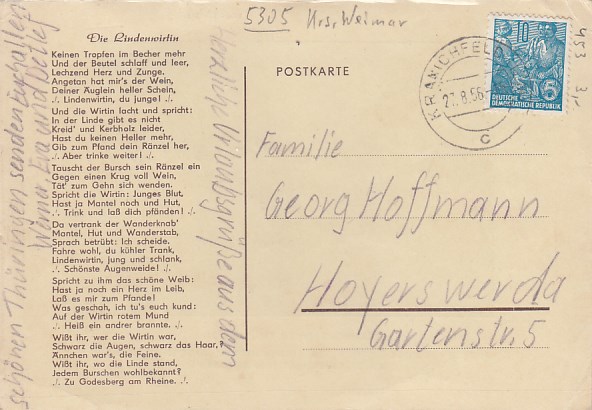 5305 Krs. Weimar
Die Lindenwirtin
Keinen Tropfen im Becher mehr
Und der Beutel schlaff und leer,
Lechzend Herz und Zunge.
Angetan hat mir's der Wein,
Deiner Äuglein heller Schein,
./. Lindenwirtin, du junge! ./.
Und die Wirtin lacht und spricht:
In der Linde gibt es nicht
Kreid' und Kerbholz leider,
Hast du keinen Heller mehr,
Gib zum Pfand dein Ränzel her,
./. Aber trinke weiter! ./.
Tauscht der Bursch sein Ränzel ein
Gegen einen Krug voll Wein,
Tät' zum Gehn sich wenden.
Spricht die Wirtin: Junges Blut,
Hast ja Mantel noch und Hut,
./. Trink und laß dich pfänden! ./.
Da vertrank der Wanderknab'
Mantel, Hut und Wanderstab,
Sprach betrübt: Ich scheide.
Fahre wohl, du kühler Trank,
Lindenwirtin, jung und schlank,
./. Schönste Augenweide! ./.
Spricht zu ihm das schöne Weib:
Hast ja noch ein Herz im Leib,
Laß es mir zum Pfande!
Was geschah, ich tu's euch kund:
Auf der Wirtin rotem Mund
./. Heiß ein andrer brannte. ./.
Wißt ihr, wer die Wirtin war,
Schwarz die Augen, schwarz das Haar,
Ännchen war's, die Feine.
Wißt ihr, wo die Linde stand,
Jedem Burschen wohlbekannt?
./. Zu Godesberg am Rheine. ./.
Herzliche Urlaubsgrüße aus dem
schönen Thüringen senden Euch allen
Eva und Detlef
POSTKARTE
KRANICHFELD
27.8.56
c
10
5
DEUTSCHE
DEMOKRATISCHE REPUBLIK
453
3,-
Familie
Georg Hoffmann
Hoyerswerda
Gartenstr. 5